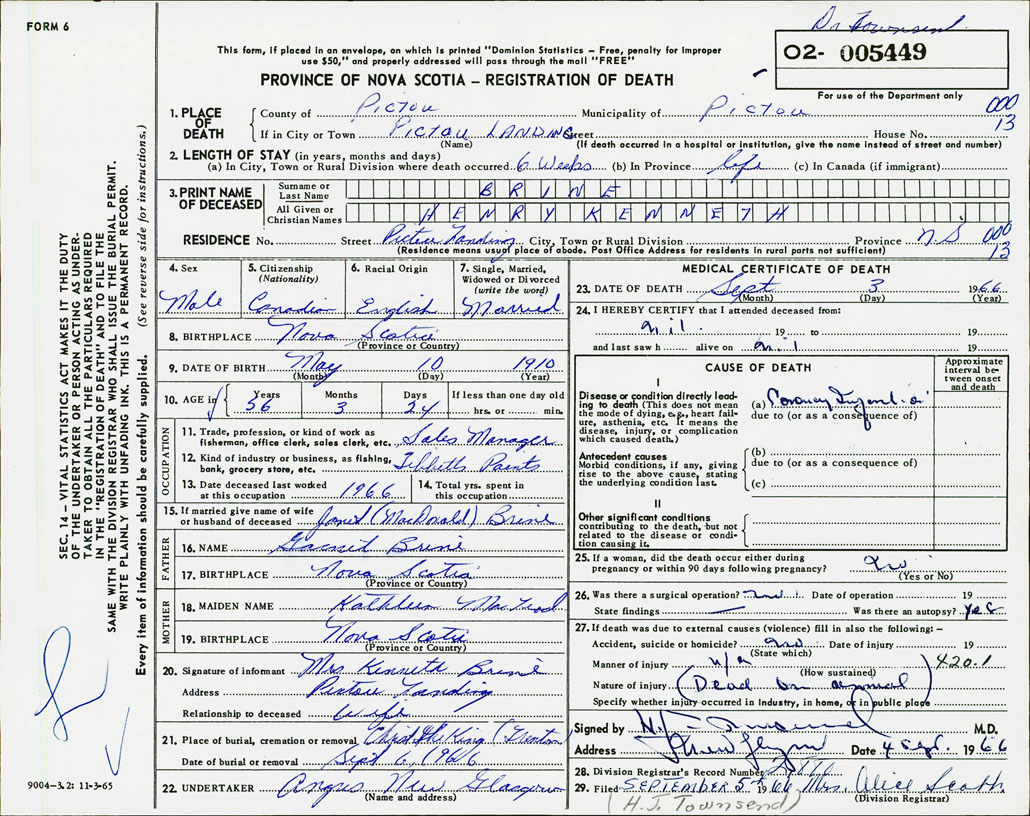 FORM 6
Dr Townsend
This form, if placed in an envelope, on which is printed "Dominion Statistics – Free, penalty for improper
use $50," and properly addressed will pass through the mail "FREE"
PROVINCE OF NOVA SCOTIA – REGISTRATION OF DEATH
O2- 005449
For use of the Department only
000
13
1. PLACE OF DEATH
County of Pictou Municipality of Pictou
If in City or Town PICTOU LANDING Street House No.
(Name) (If death occurred in a hospital or institution, give the name instead of street and number)
2. LENGTH OF STAY (in years, months and days)
(a) In City, Town or Rural Division where death occurred 6 Weeks (b) In Province life (c) In Canada (if immigrant)
3. PRINT NAME OF DECEASED
Surname or Last Name BRINE
All Given or Christian Names HENRY KENNETH
RESIDENCE No. Street Pictou Landing City, Town or Rural Division Province N.S. 000
13
(Residence means usual place of abode. Post Office Address for residents in rural parts not sufficient)
4. Sex Male
5. Citizenship (Nationality) Canadian
6. Racial Origin English
7. Single, Married, Widowed or Divorced (write the word) Married
8. BIRTHPLACE Nova Scotia
(Province or Country)
9. DATE OF BIRTH May 10 1910
(Month) (Day) (Year)
10. AGE in Years Months Days If less than one day old
56 3 24 hrs. or min.
OCCUPATION
11. Trade, profession, or kind of work as
fisherman, office clerk, sales clerk, etc. Sales Manager
12. Kind of industry or business, as fishing,
bank, grocery store, etc. Tibbetts Paints
13. Date deceased last worked
at this occupation 1966
14. Total yrs. spent in
this occupation
15. If married give name of wife
or husband of deceased Janet (MacDonald) Brine
FATHER
16. NAME Brine
17. BIRTHPLACE Nova Scotia
(Province or Country)
MOTHER
18. MAIDEN NAME Kathleen MacLeod
19. BIRTHPLACE Nova Scotia
(Province or Country)
20. Signature of informant Mrs. Kenneth Brine
Address Pictou Landing
Relationship to deceased Wife
21. Place of burial, cremation or removal Christ the King (Trenton)
Date of burial or removal Sept 6, 1966
22. UNDERTAKER Angus New Glasgow
(Name and address)
MEDICAL CERTIFICATE OF DEATH
23. DATE OF DEATH Sept 3 1966
(Month) (Day) (Year)
24. I HEREBY CERTIFY that I attended deceased from:
nil 19 to 19
and last saw h alive on nil 19
CAUSE OF DEATH
Approximate interval between onset and death
I
Disease or condition directly lead-
ing to death (This does not mean
the mode of dying, e.g., heart fail-
ure, asthenia, etc. It means the
disease, injury, or complication
which caused death.)
(a) Coronary
due to (or as a consequence of)
Antecedent causes
Morbid conditions, if any, giving
rise to the above cause, stating
the underlying condition last.
(b)
due to (or as a consequence of)
(c)
II
Other significant conditions
contributing to the death, but not
related to the disease or condi-
tion causing it.
25. If a woman, did the death occur either during
pregnancy or within 90 days following pregnancy? no
(Yes or No)
26. Was there a surgical operation? Date of operation 19
State findings — Was there an autopsy? yes
27. If death was due to external causes (violence) fill in also the following: –
Accident, suicide or homicide? no Date of injury 19
(State which)
Manner of injury n/a 420.1
(How sustained)
Nature of injury (Dead on arrival)
Specify whether injury occurred in Industry, in home, or in public place
Signed by H.J. Townsend M.D.
Address New Glasgow Date 4 Sept. 1966
28. Division Registrar's Record Number
29. Filed SEPTEMBER 5th 1966 Mrs. Alice Scott
(Division Registrar)
(H.J. TOWNSEND)
SEC. 14 – VITAL STATISTICS ACT MAKES IT THE DUTY
OF THE UNDERTAKER OR PERSON ACTING AS UNDER-
TAKER TO OBTAIN ALL THE PARTICULARS REQUIRED
IN THE "REGISTRATION OF DEATH" AND TO FILE THE
SAME WITH THE DIVISION REGISTRAR WHO SHALL ISSUE THE BURIAL PERMIT.
WRITE PLAINLY WITH UNFADING INK. THIS IS A PERMANENT RECORD.
Every item of information should be carefully supplied. (See reverse side for instructions.)
9004-3.2: 11-3-65